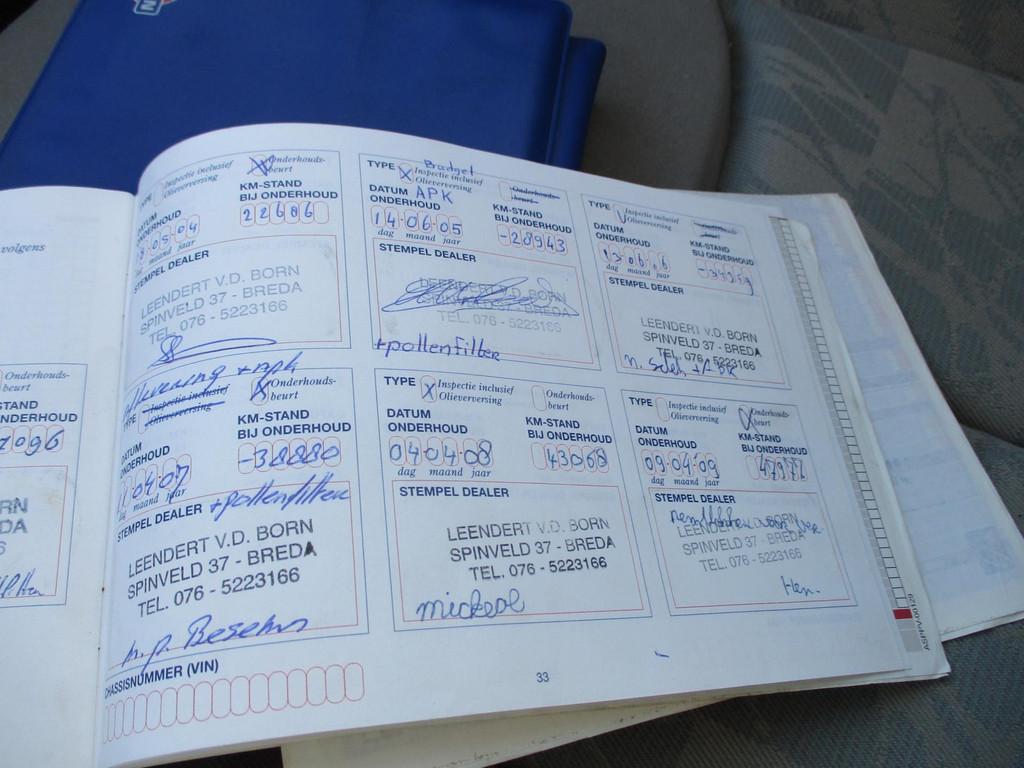 volgens
Onderhouds-
beurt
STAND
ONDERHOUD
7096
RN
DA
Inspectie inclusief
Olieverversing
Onderhouds-
beurt
DATUM
ONDERHOUD
KM-STAND
BIJ ONDERHOUD
05 04
22686
dag maand jaar
STEMPEL DEALER
LEENDERT V.D. BORN
SPINVELD 37 - BREDA
TEL. 076 - 5223166
Budget
TYPE X Inspectie inclusief
Olieverversing
Onderhouds-
beurt
DATUM APK
ONDERHOUD
KM-STAND
BIJ ONDERHOUD
14-06-05
-28943
dag maand jaar
STEMPEL DEALER
LEENDERT V.D. BORN
SPINVELD 37 - BREDA
TEL. 076 - 5223166
+pollenfilter
TYPE V Inspectie inclusief
Olieverversing
DATUM
ONDERHOUD
KM-STAND
BIJ ONDERHOUD
dag maand jaar
STEMPEL DEALER
LEENDERT V.D. BORN
SPINVELD 37 - BREDA
TEL. 076 - 5223166
+ apk
TYPE Inspectie inclusief
Olieverversing
X Onderhouds-
beurt
DATUM
ONDERHOUD
KM-STAND
BIJ ONDERHOUD
04 07
-38880
dag maand jaar
STEMPEL DEALER +pollenfilter
LEENDERT V.D. BORN
SPINVELD 37 - BREDA
TEL. 076 - 5223166
TYPE X Inspectie inclusief
Olieverversing
Onderhouds-
beurt
DATUM
ONDERHOUD
KM-STAND
BIJ ONDERHOUD
04-04-08
43068
dag maand jaar
STEMPEL DEALER
LEENDERT V.D. BORN
SPINVELD 37 - BREDA
TEL. 076 - 5223166
TYPE Inspectie inclusief
Olieverversing
Onderhouds-
beurt
DATUM
ONDERHOUD
KM-STAND
BIJ ONDERHOUD
09-04-09
dag maand jaar
STEMPEL DEALER
LEENDERT V.D. BORN
SPINVELD 37 - BREDA
TEL. 076 - 5223166
CHASSISNUMMER (VIN)
33